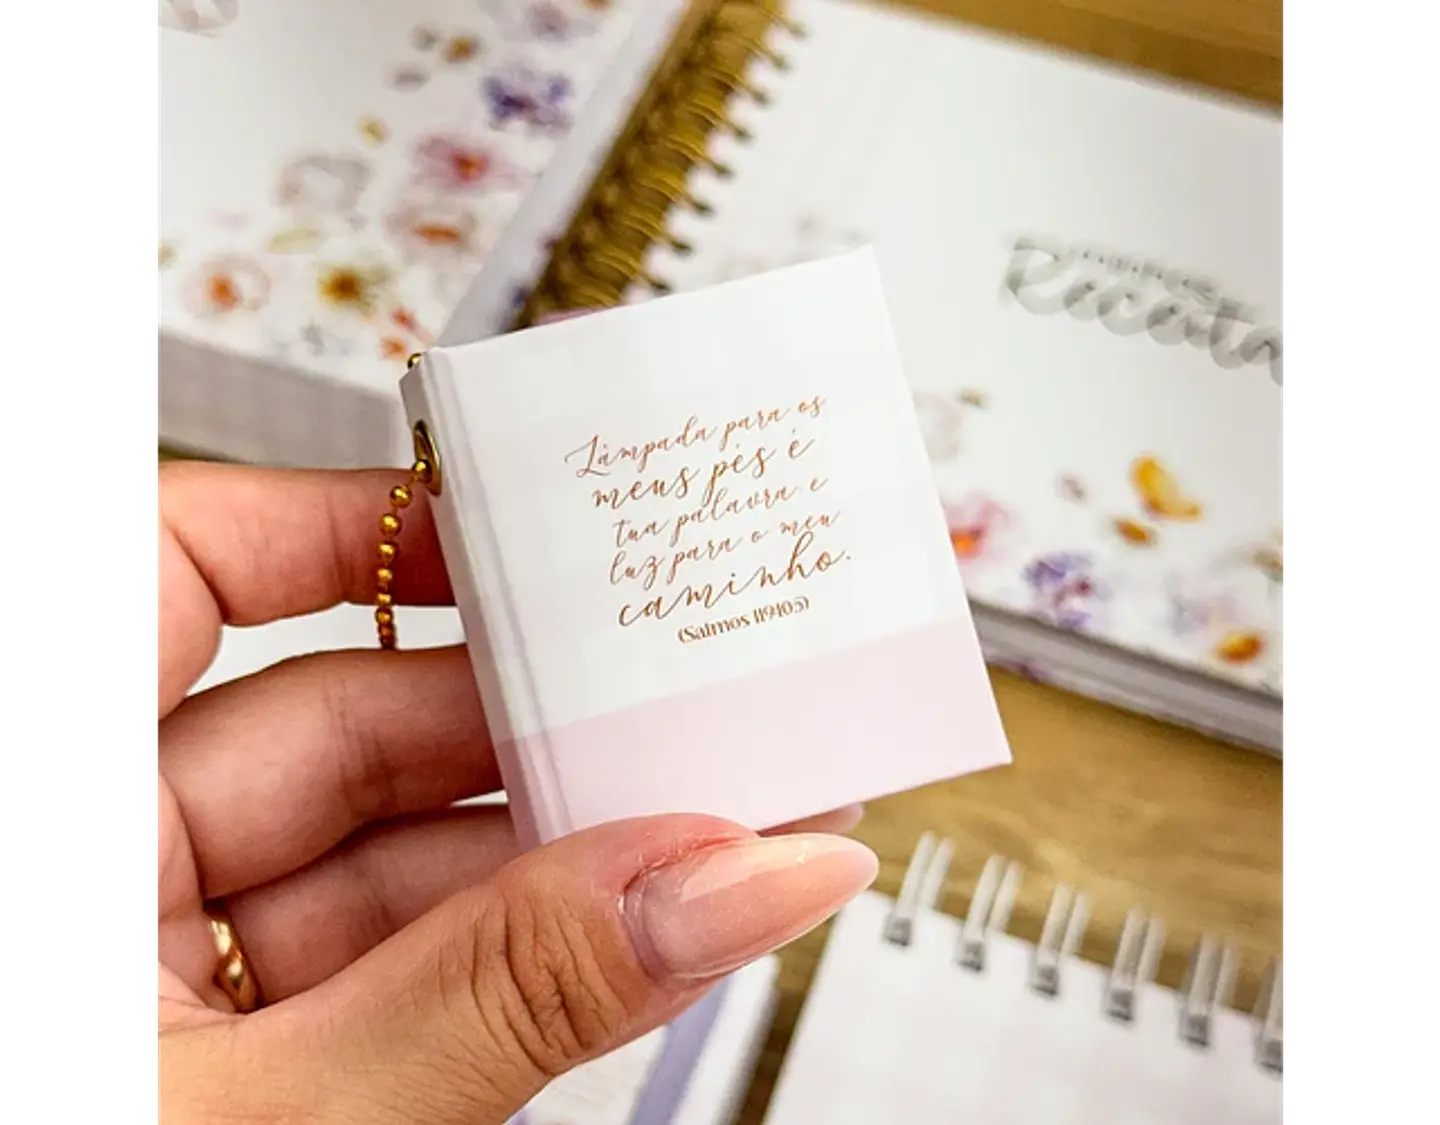 Lâmpada para os
meus pés é
tua palavra e
luz para o meu
caminho.
(Salmos 119:105)